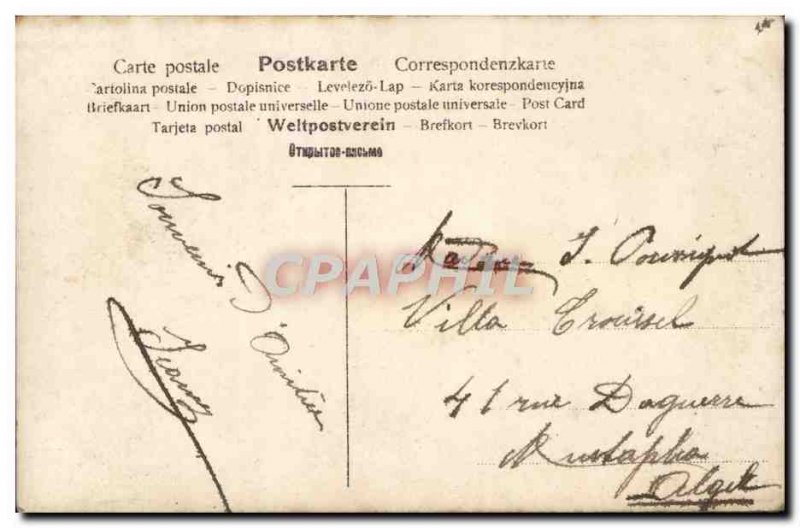 Carte postale Postkarte Correspondenzkarte
Cartolina postale – Dopisnice – Levelező-Lap – Karta korespondencyjna
Briefkaart – Union postale universelle – Unione postale universale – Post Card
Tarjeta postal Weltpostverein – Brefkort – Brevkort
Открытое-письмо
Souvenir
D'Amitiés
CPARHIL
Villa
41 rue Daguerre
Mustapha
Alger